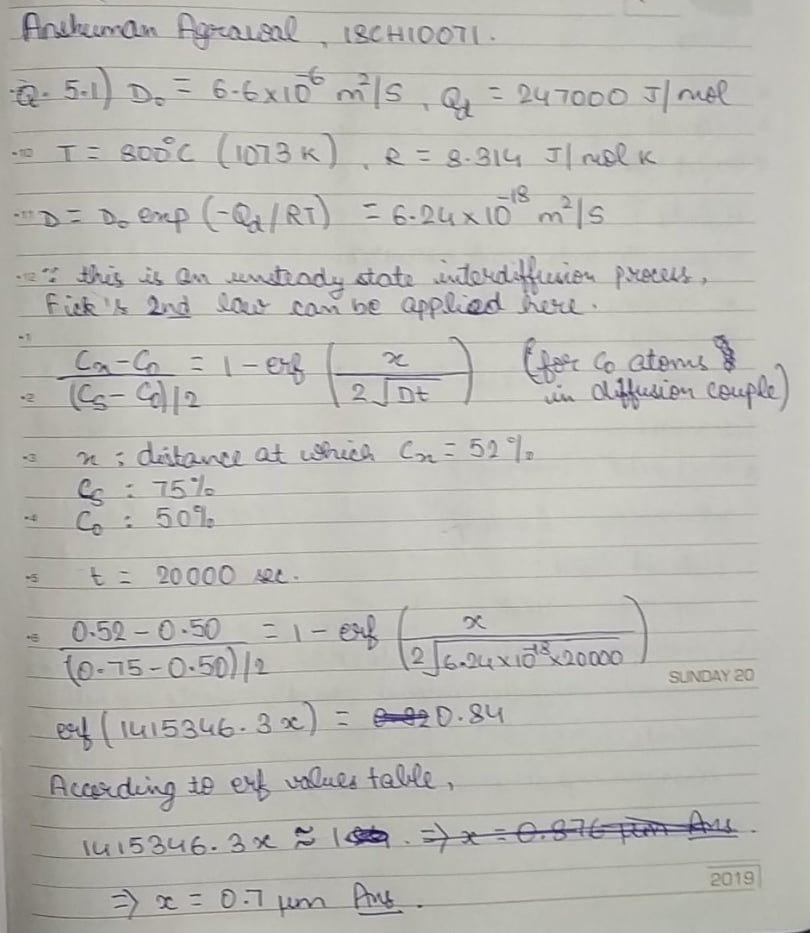 Anshuman Agrawal, 18CH10071.
Q. 5.1) D₀ = 6.6×10⁻⁶ m²/S, Q_d = 247000 J/mol
T = 800°C (1073 K), R = 8.314 J/mol K
D = D₀ exp (-Q_d/RT) = 6.24×10⁻¹⁸ m²/S
∵ this is an unsteady state interdiffusion process,
Fick's 2nd law can be applied here.
(Cx-C₀)/((Cs-C₀)/2) = 1-erf (x/(2√Dt)) (for Co atoms in diffusion couple)
x : distance at which Cx = 52%
Cs : 75%
C₀ : 50%
t = 20000 sec.
(0.52-0.50)/((0.75-0.50)/2) = 1-erf (x/(2√6.24×10⁻¹⁸×20000))
SUNDAY 20
erf (1415346.3x) = 0.84
According to erf values table,
1415346.3x ≈ 1. ⇒ x = 0.876 μm Ans.
2019
⇒ x = 0.7 μm Ans.